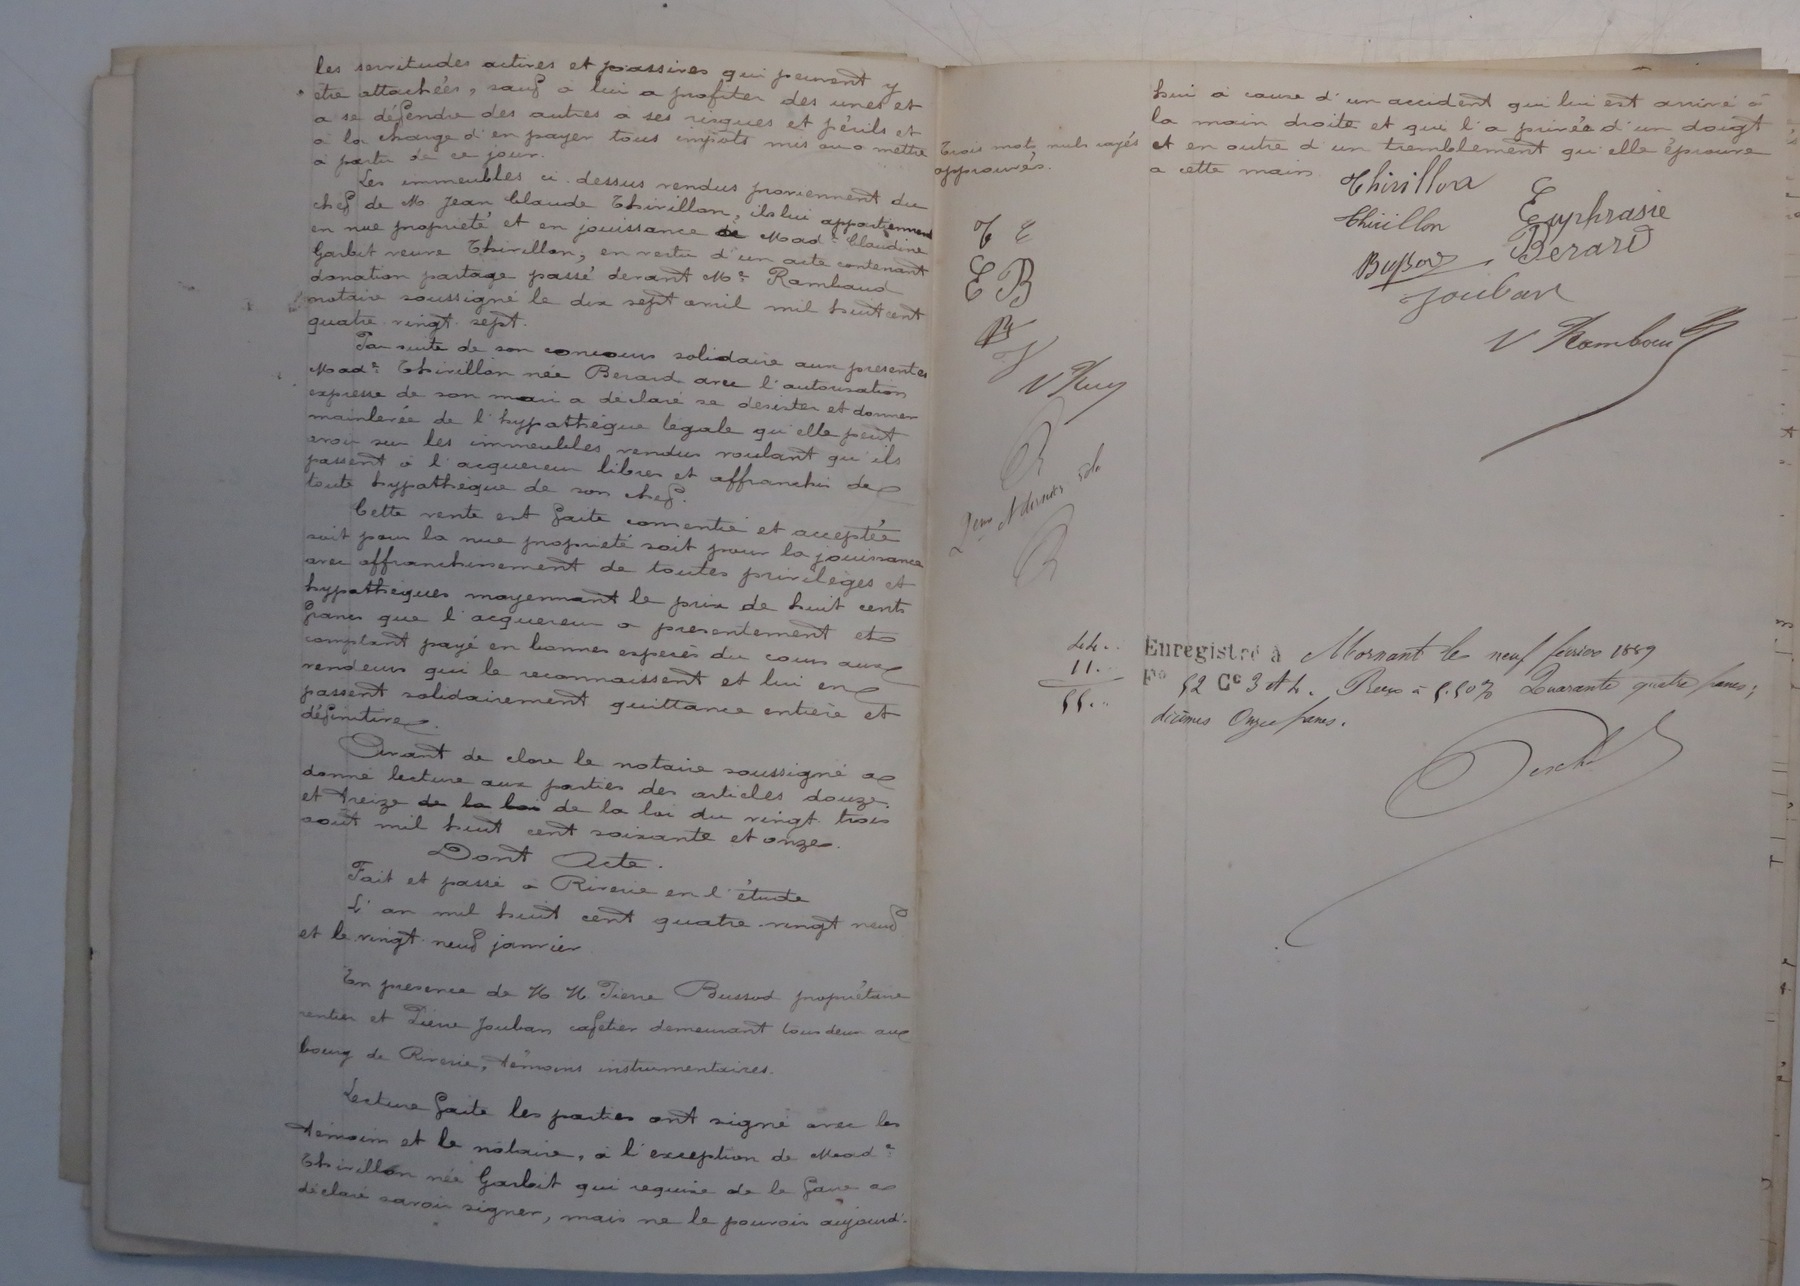 les servitudes actives et passives qui peuvent y
etre attachées, sauf à lui a profiter des unes et
a se défendre des autres a ses risques et périls et
à la charge d'en payer tous impots mis ou a mettre
à partir de ce jour.
Les immeubles ci-dessus vendus proviennent du
chef de M Jean Claude Thivillon, ils lui appartiennent
en nue propriété et en jouissance de Made Claudine
Garbit veuve Thivillon, en vertu d'un acte contenant
donation partage passé devant Me Rambaud
notaire soussigné le dix sept avril mil huit cent
quatre vingt sept.
Par suite de son concours solidaire aux presentes
Made Thivillon née Berard avec l'autorisation
expresse de son mari a déclaré se désister et donner
mainlevée de l'hypothèque legale qu'elle peut
avoir sur les immeubles vendus voulant qu'ils
passent à l'acquereur libres et affranchis de
toute hypothèque de son chef.
Cette vente est faite consentie et acceptée
soit pour la nue propriété soit pour la jouissance
avec affranchissement de toutes privilèges et
hypothèques moyennant le prix de huit cents
francs que l'acquereur a presentement et
comptant payé en bonnes espèces du cours aux
vendeurs qui le reconnaissent et lui en
passent solidairement quittance entière et
définitive.
Avant de clore le notaire soussigné a
donné lecture aux parties des articles douze
et treize de la loi de la loi du vingt trois
août mil huit cent soixante et onze.
Dont Acte.
Fait et passé à Riverie en l'étude
L'an mil huit cent quatre-vingt neuf
et le vingt neuf janvier
En présence de M M. Pierre Bussod propriétaire
rentier et Pierre Jouban cafetier demeurant tous deux au
bourg de Riverie, témoins instrumentaires.
Lecture faite les parties ont signé avec les
témoins et le notaire, à l'exception de Made
Thivillon née Garbit qui requise de le faire a
déclaré savoir signer, mais ne le pouvoir aujourd'
hui à cause d'un accident qui lui est arrivé à
la main droite et qui l'a privée d'un doigt
et en outre d'un tremblement qu'elle éprouve
a cette main
Trois mots nuls rayés
approuvés.
Thivillon
Thivillon
Euphrasie
Berard
Jouban
V Rambaud
E B
2eme et dernier role
44..
11..
55..
Enregistré à Mornant le neuf février 1889
Fo 52 Ce 3 et 4. Reçu à 5.50% Quarante quatre francs;
décimes Onze francs.